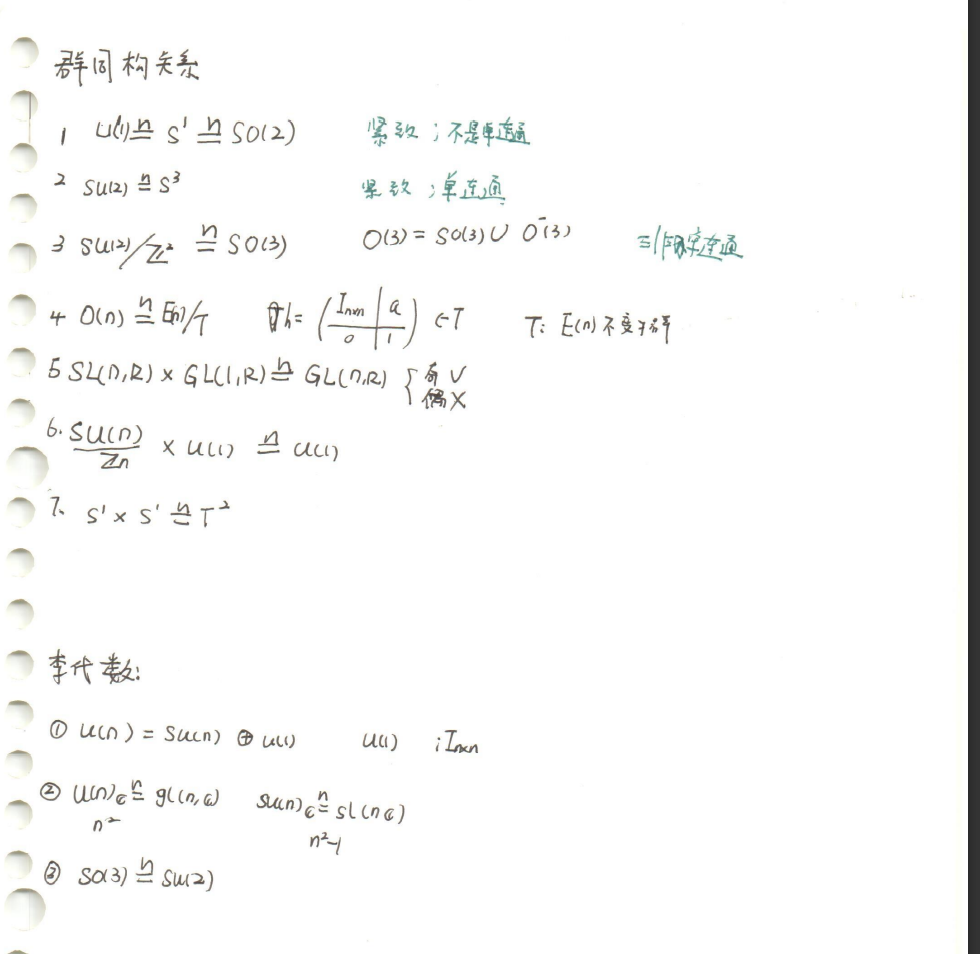 群同构关系
1 U(1) ≅ S¹ ≅ SO(2) 紧致；不是单连通
2 SU(2) ≅ S³ 紧致；单连通
3 SU(2)/Z² ≅ SO(3) O(3) = SO(3) ∪ O⁻(3) 连通
4 O(n) ≅ E(n)/T h = ( Inxn | a / 0 | 1 ) ∈ T T: E(n) 不变子群
5 SL(n,R) × GL(1,R) ≅ GL(n,R) { 奇 ✓ 偶 ×
6. SU(n)/Zn × U(1) ≅ U(1)
7. S' × S' ≅ T²
李代数:
① U(n) = SU(n) ⊕ U(1) U(1) iInxn
② U(n)c ≅ gl(n,C) SU(n)c ≅ sl(n C)
n² n²-1
③ SO(3) ≅ SU(2)